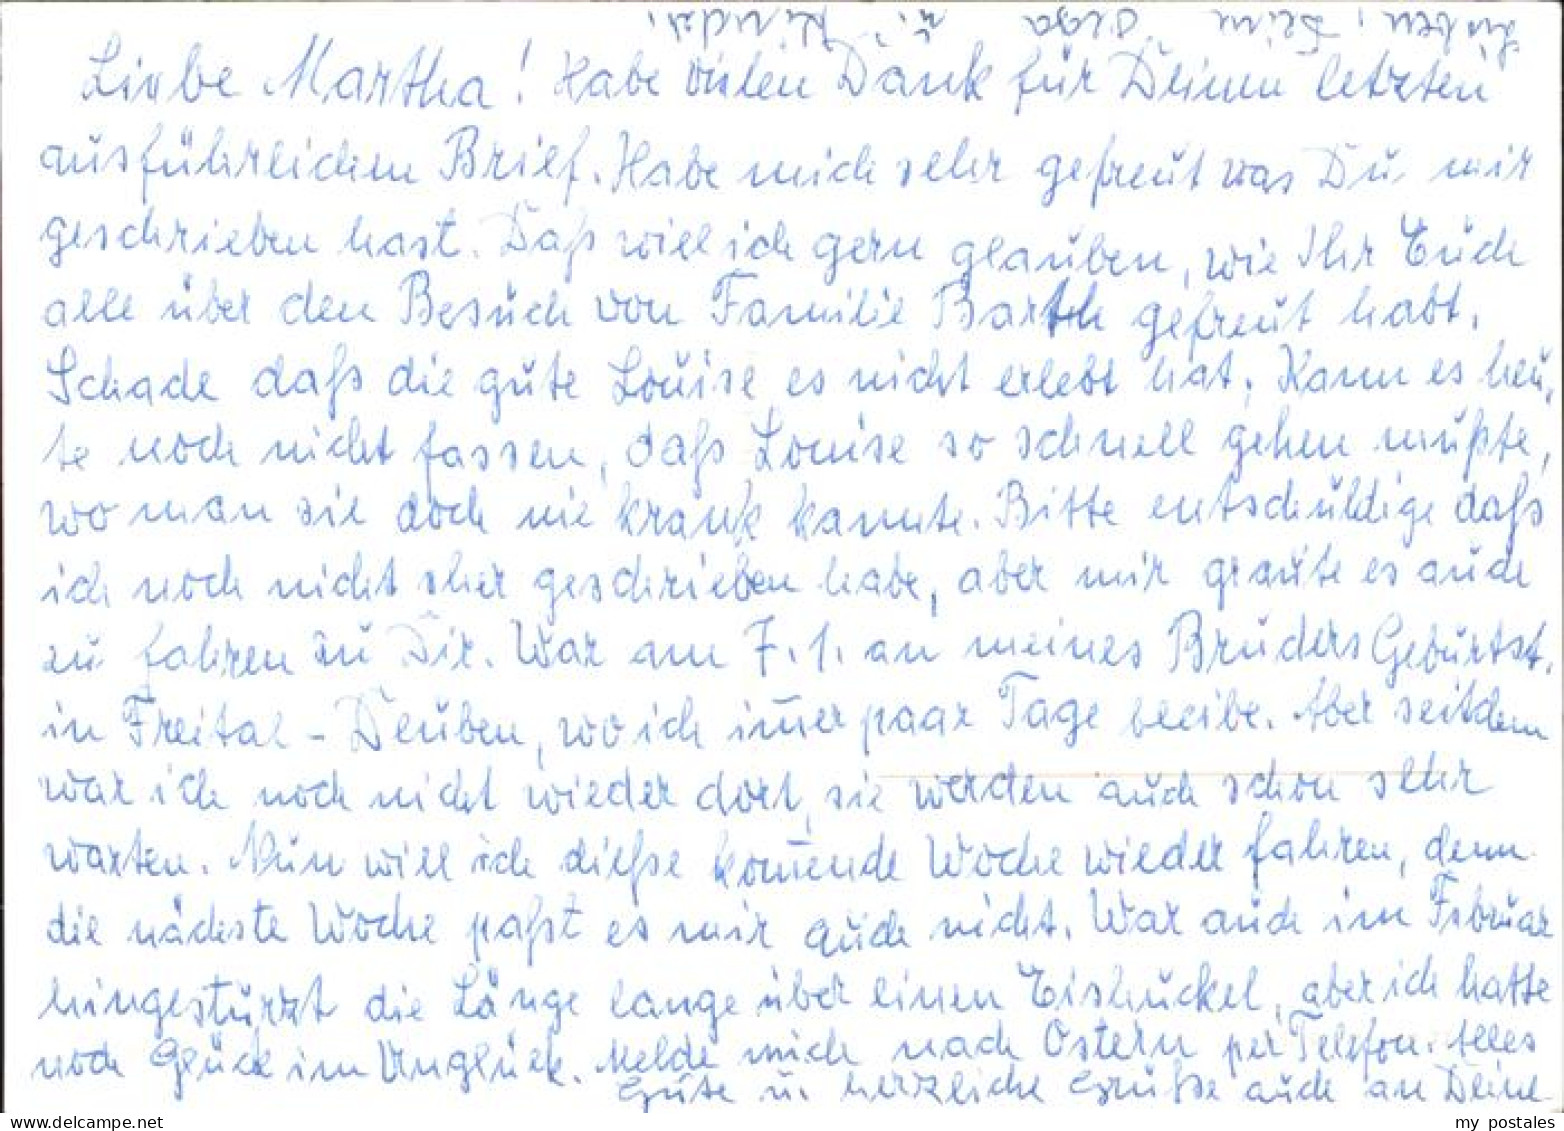 Liebe Martha! Habe vielen Dank für Deinen letzten
ausführlichen Brief. Habe mich sehr gefreut was Du mir
geschrieben hast. Daß will ich gern glauben, wie Ihr Euch
alle über den Besuch von Familie Barth gefreut habt.
Schade daß die gute Louise es nicht erlebt hat. Kann es heu-
te noch nicht fassen, daß Louise so schnell gehen mußte,
wo man sie doch nie krank kannte. Bitte entschuldige daß
ich noch nicht eher geschrieben habe, aber mir graute es auch
zu fahren zu Dir. War am 7.1. an meines Bruders Geburtst.
in Freital-Deuben, wo ich im̄er paar Tage bleibe. Aber seitdem
war ich noch nicht wieder dort, sie werden auch schon sehr
warten. Nun will ich dieße kom̄ende Woche wieder fahren, denn
die nächste Woche paßt es mir auch nicht. War auch im Februar
hingestürzt die Länge lange über einen Eishuckel, aber ich hatte
noch Glück im Unglück. Melde mich nach Ostern per Telefon. Alles
Gute u. herzliche Grüße auch an Deine
Lieben, Deine Olga u. Kinder.
my postales